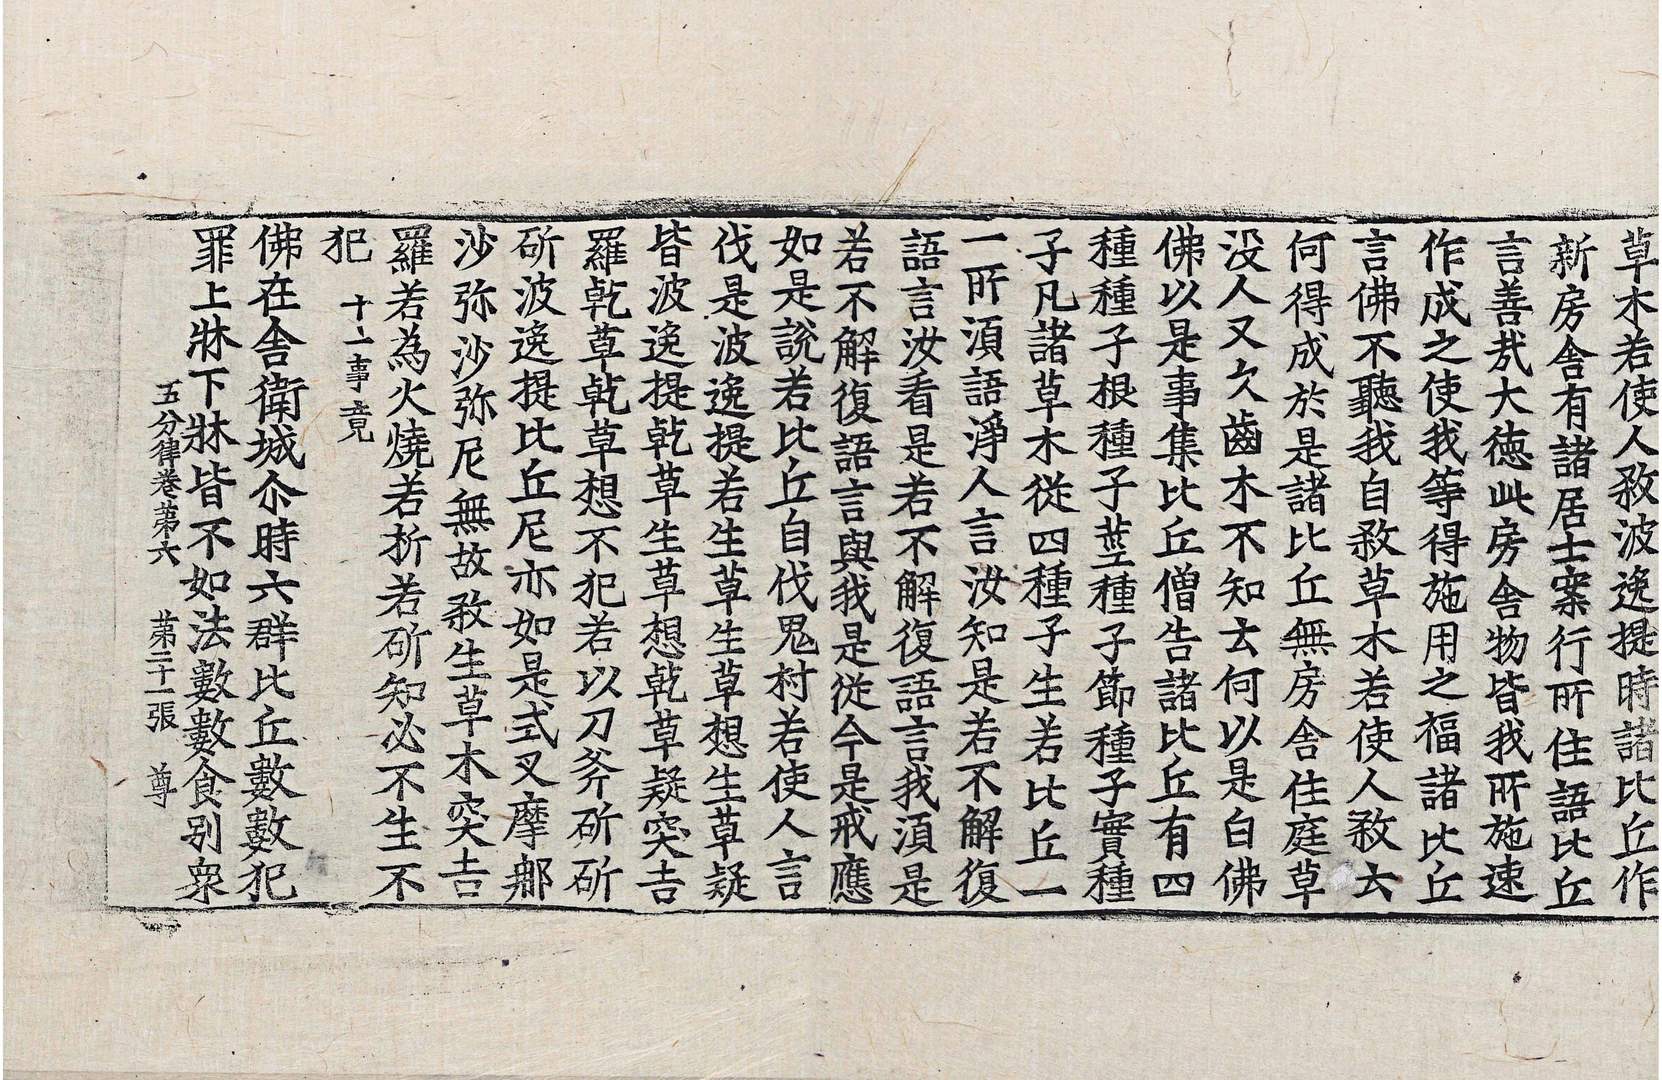 草木若使人敎波逸提時諸比丘作
新房舎有諸居士案行所住語比丘
言善㦲大徳此房舎物皆我所施速
作成之使我等得施用之福諸比丘
言佛不聽我自敎草木若使人敎云
何得成於是諸比丘無房舎住庭草
没人又欠齒木不知云何以是白佛
佛以是事集比丘僧告諸比丘有四
種種子根種子莖種子節種子實種
子凡諸草木從四種子生若比丘一
一所湏語淨人言汝知是若不解復
語言汝看是若不解復語言我湏是
若不解復語言與我是從今是戒應
如是說若比丘自伐鬼村若使人言
伐是波逸提若生草生草想生草疑
皆波逸提乾草生草想乾草疑突吉
羅乾草乾草想不犯若以刀斧斫斫
斫波逸提比丘尼亦如是式叉摩那
沙弥沙弥尼無故敎生草木突吉
羅若為火燒若析若斫知必不生不
犯 十一事竟
佛在舎衛城尒時六群比丘數數犯
罪上牀下牀皆不如法數數食別衆
五分律卷第六 第三十一張 尊